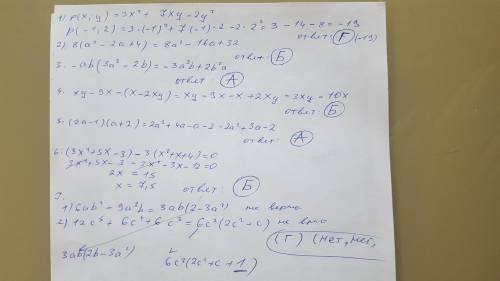 1) P(x, y) = 3x² + 7xy - 2y²
P(-1; 2) = 3·(-1)² + 7·(-1)·2 - 2·2² = 3 - 14 - 8 = -19
ответ: Г (-19)
2) 8(a² - 2a + 4) = 8a² - 16a + 32
ответ: Б
3. -ab(3a² - 2b) = -3a³b + 2b²a
ответ: А
4. xy - 9x - (x - 2xy) = xy - 9x - x + 2xy = 3xy - 10x
ответ: Б
5. (2a-1)(a+2) = 2a² + 4a - a - 2 = 2a² + 3a - 2
ответ: А
6. (3x² + 5x - 3) - 3(x² + x + 4) = 0
3x² + 5x - 3 - 3x² - 3x - 12 = 0
2x = 15
x = 7,5
ответ: Б
7.
1) 6ab² - 9a³b = 3ab(2 - 3a²) не верно
2) 12c⁵ + 6c⁴ + 6c³ = 6c³(2c² + c) не верно
(Г) (нет, нет,
3ab(2b - 3a²)
6c³(2c² + c + 1)